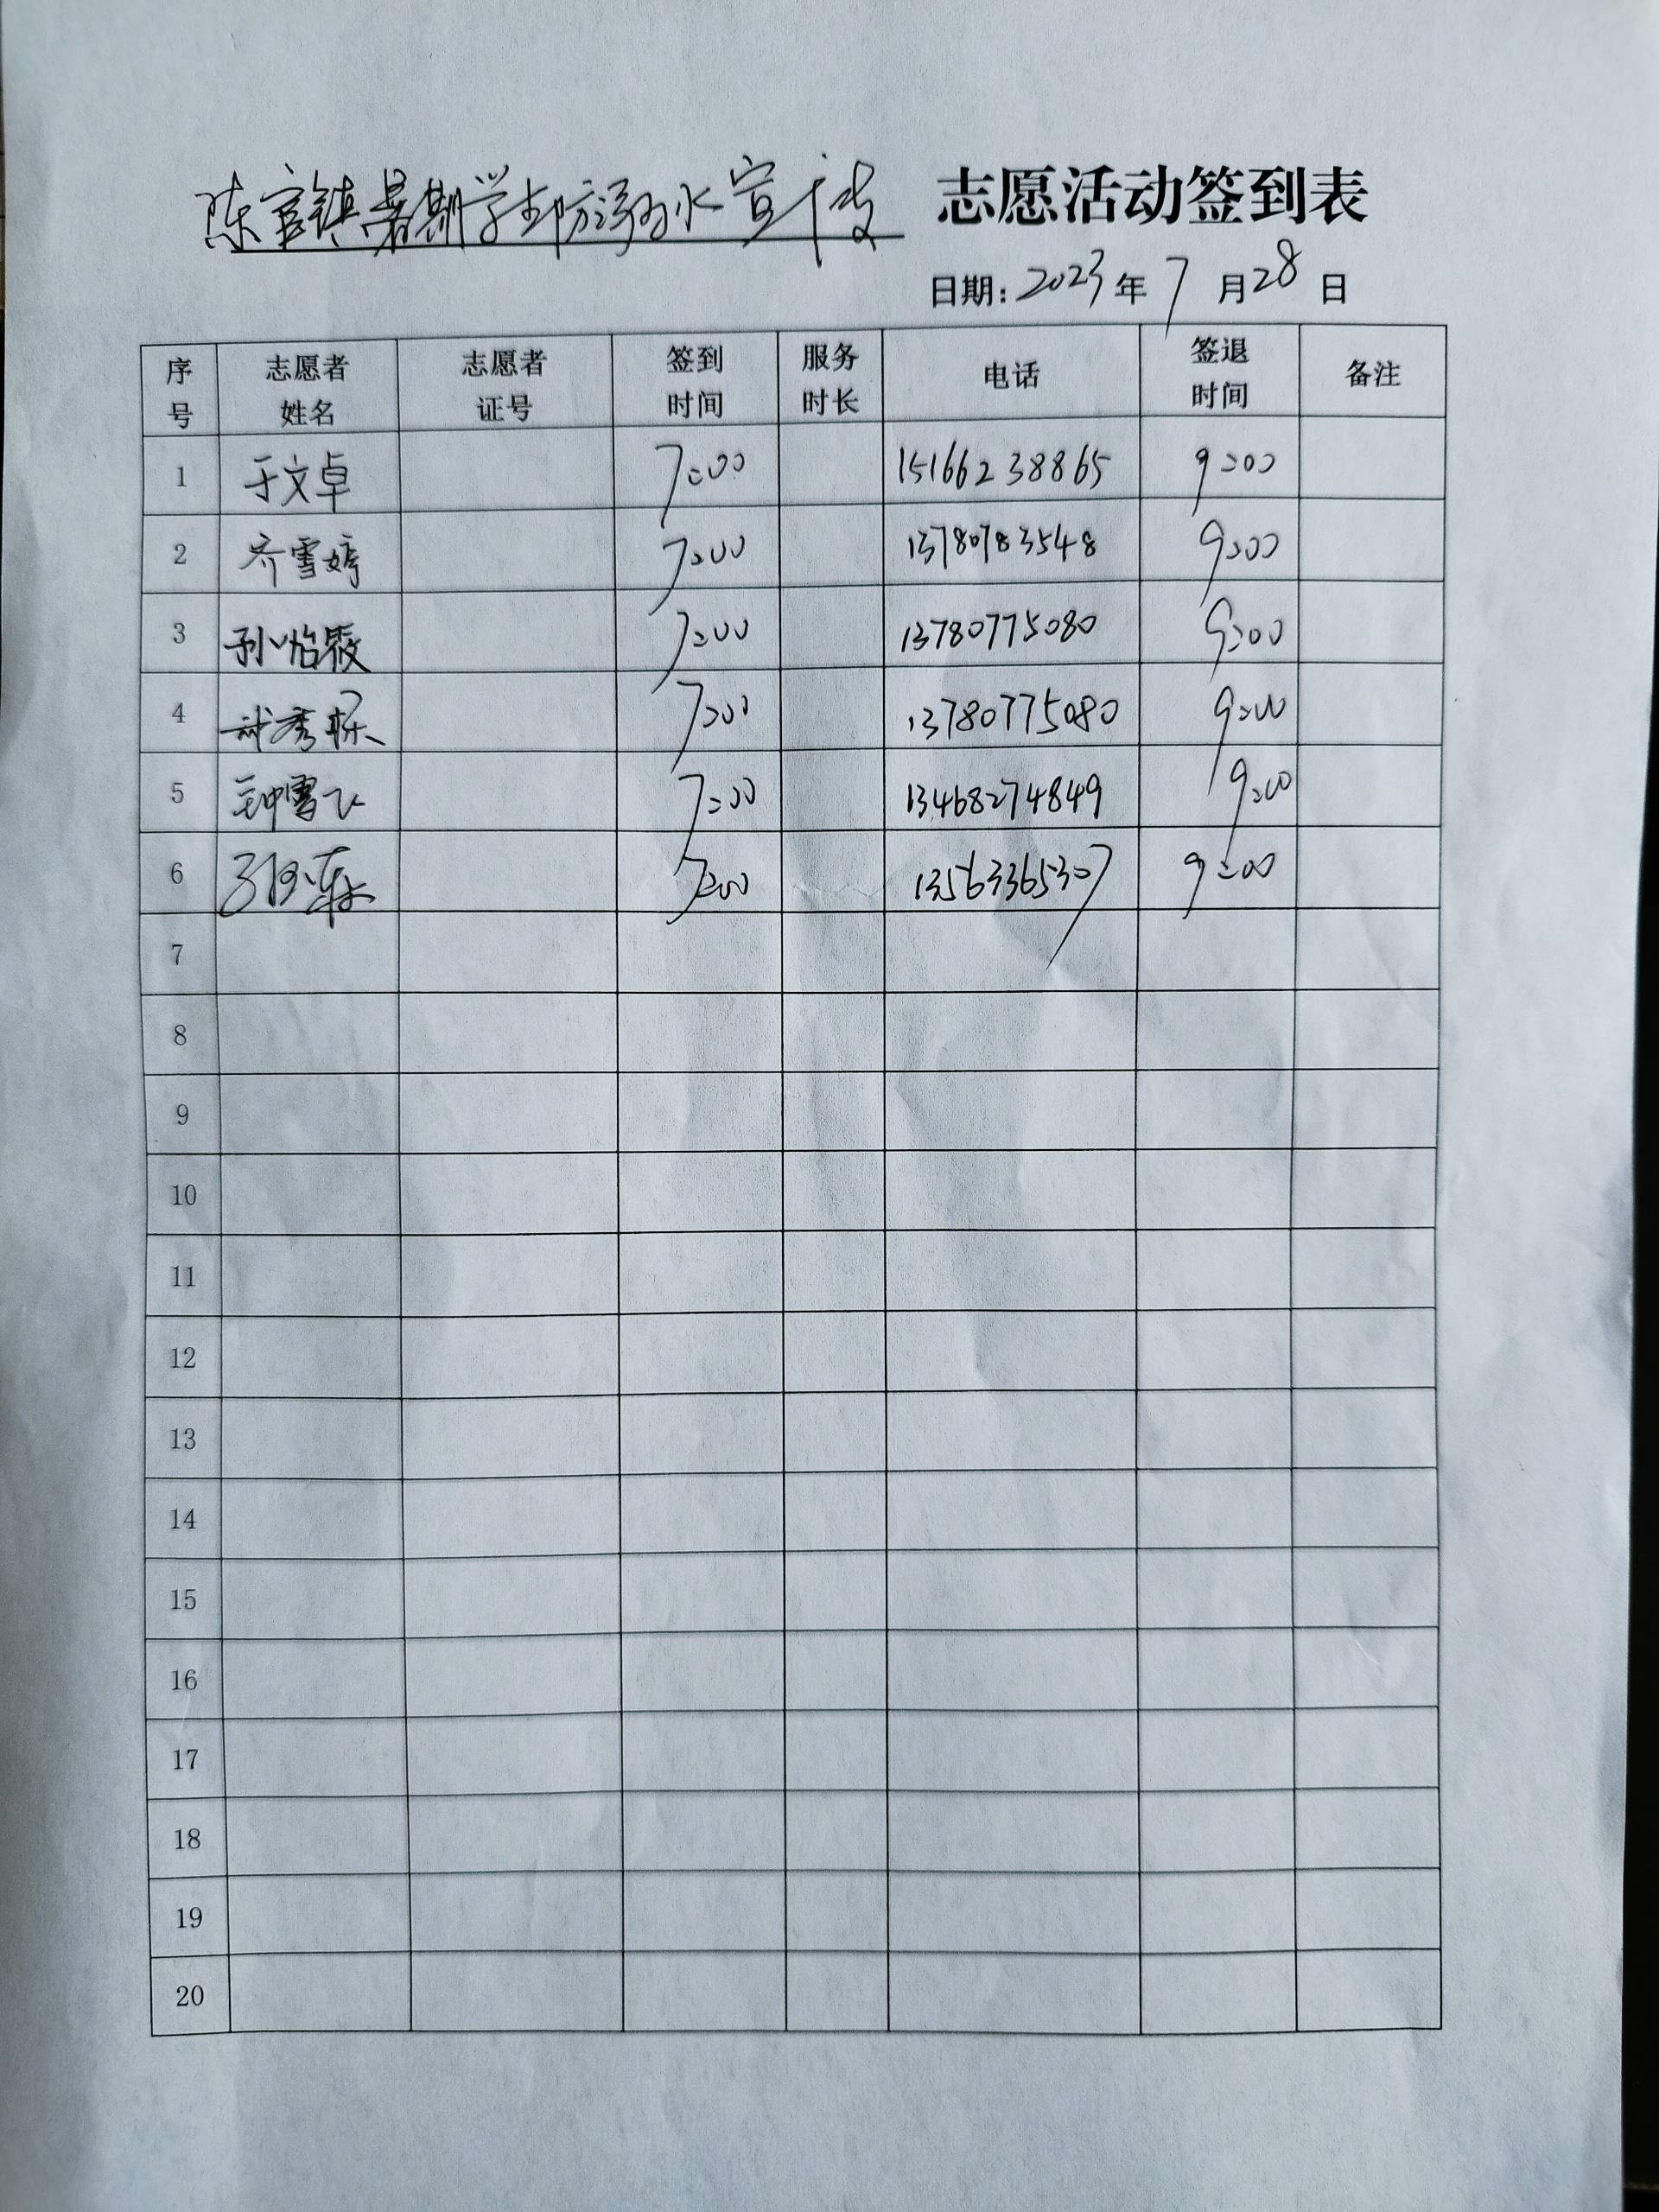 陈官镇暑期学生防溺水宣传 志愿活动签到表
日期：2023年7月28日
序号 志愿者姓名 志愿者证号 签到时间 服务时长 电话 签退时间 备注
1 于文卓 7:00 15166238865 9:00
2 齐雪婷 7:00 13780783548 9:00
3 孙怡 7:00 13780775080 9:00
4 秀 7:00 13780775080 9:00
5 钟雪飞 7:00 13468274849 9:00
6 7:00 13563365307 9:00
7
8
9
10
11
12
13
14
15
16
17
18
19
20